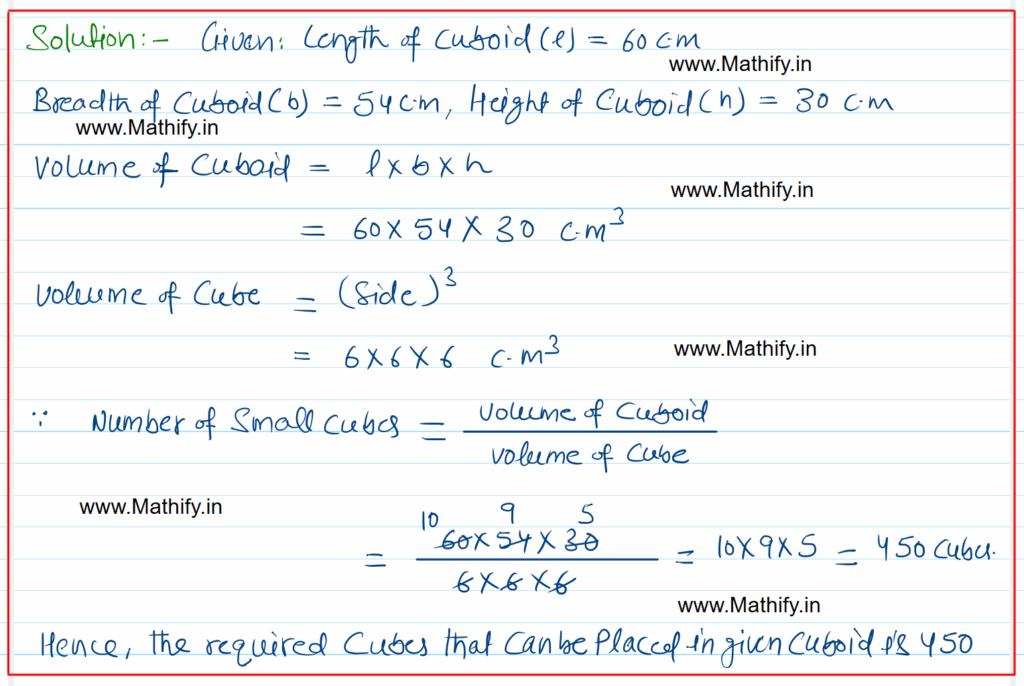 Solution:- Given: Length of Cuboid (l) = 60 c·m
www.Mathify.in
Breadth of Cuboid (b) = 54 c·m, Height of Cuboid (h) = 30 c·m
www.Mathify.in
Volume of Cuboid = l × b × h
www.Mathify.in
= 60 × 54 × 30 c·m³
Volume of Cube = (Side)³
= 6 × 6 × 6 c·m³
www.Mathify.in
∵ Number of Small Cubes = Volume of Cuboid
Volume of Cube
www.Mathify.in
10 9 5
= 60 × 54 × 30 = 10 × 9 × 5 = 450 Cubes.
6 × 6 × 6
www.Mathify.in
Hence, the required Cubes that Can be Placed in given Cuboid is 450